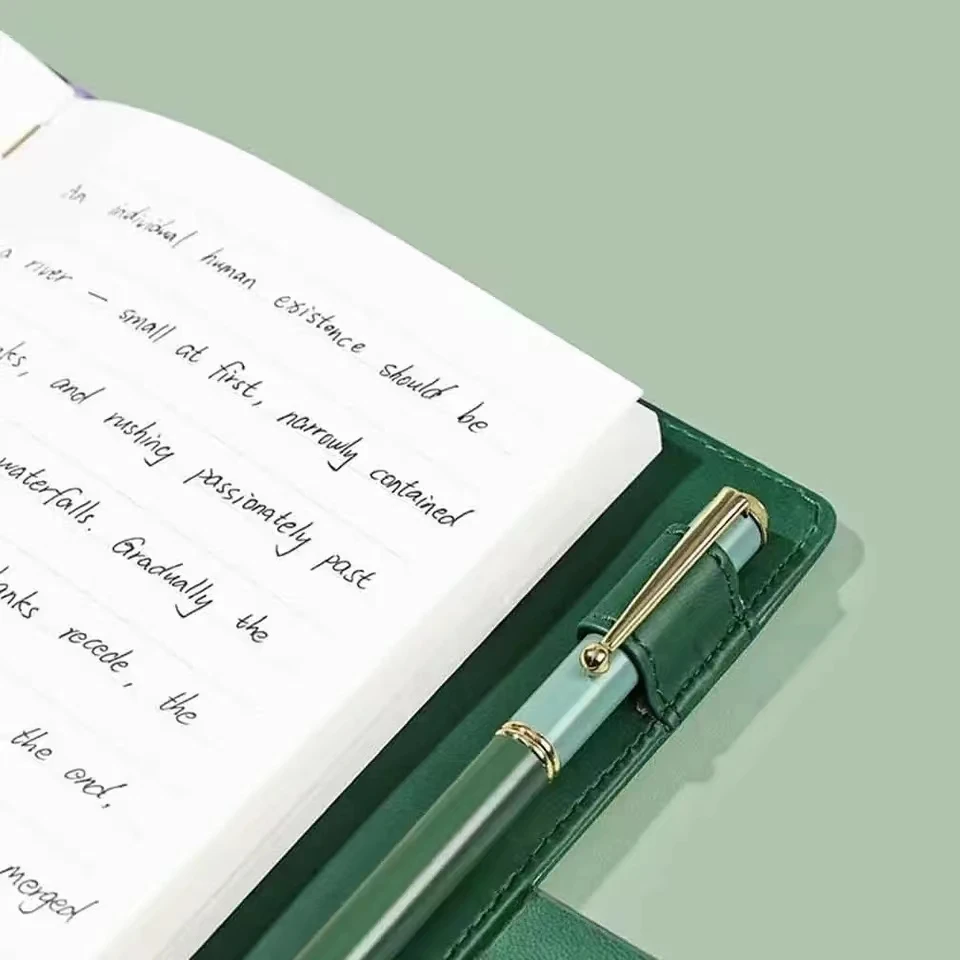 An individual human existence should be
a river – small at first, narrowly contained
nks, and rushing passionately past
waterfalls. Gradually the
anks recede, the
the end,
merged